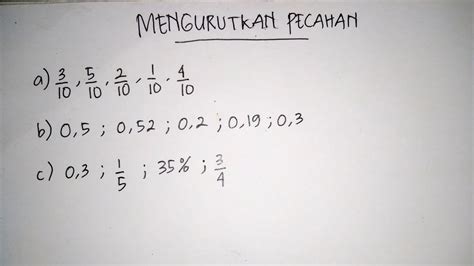 MENGURUTKAN PECAHAN
a) 3/10, 5/10, 2/10, 1/10, 4/10
b) 0,5 ; 0,52 ; 0,2 ; 0,19 ; 0,3
c) 0,3 ; 1/5 ; 35% ; 3/4